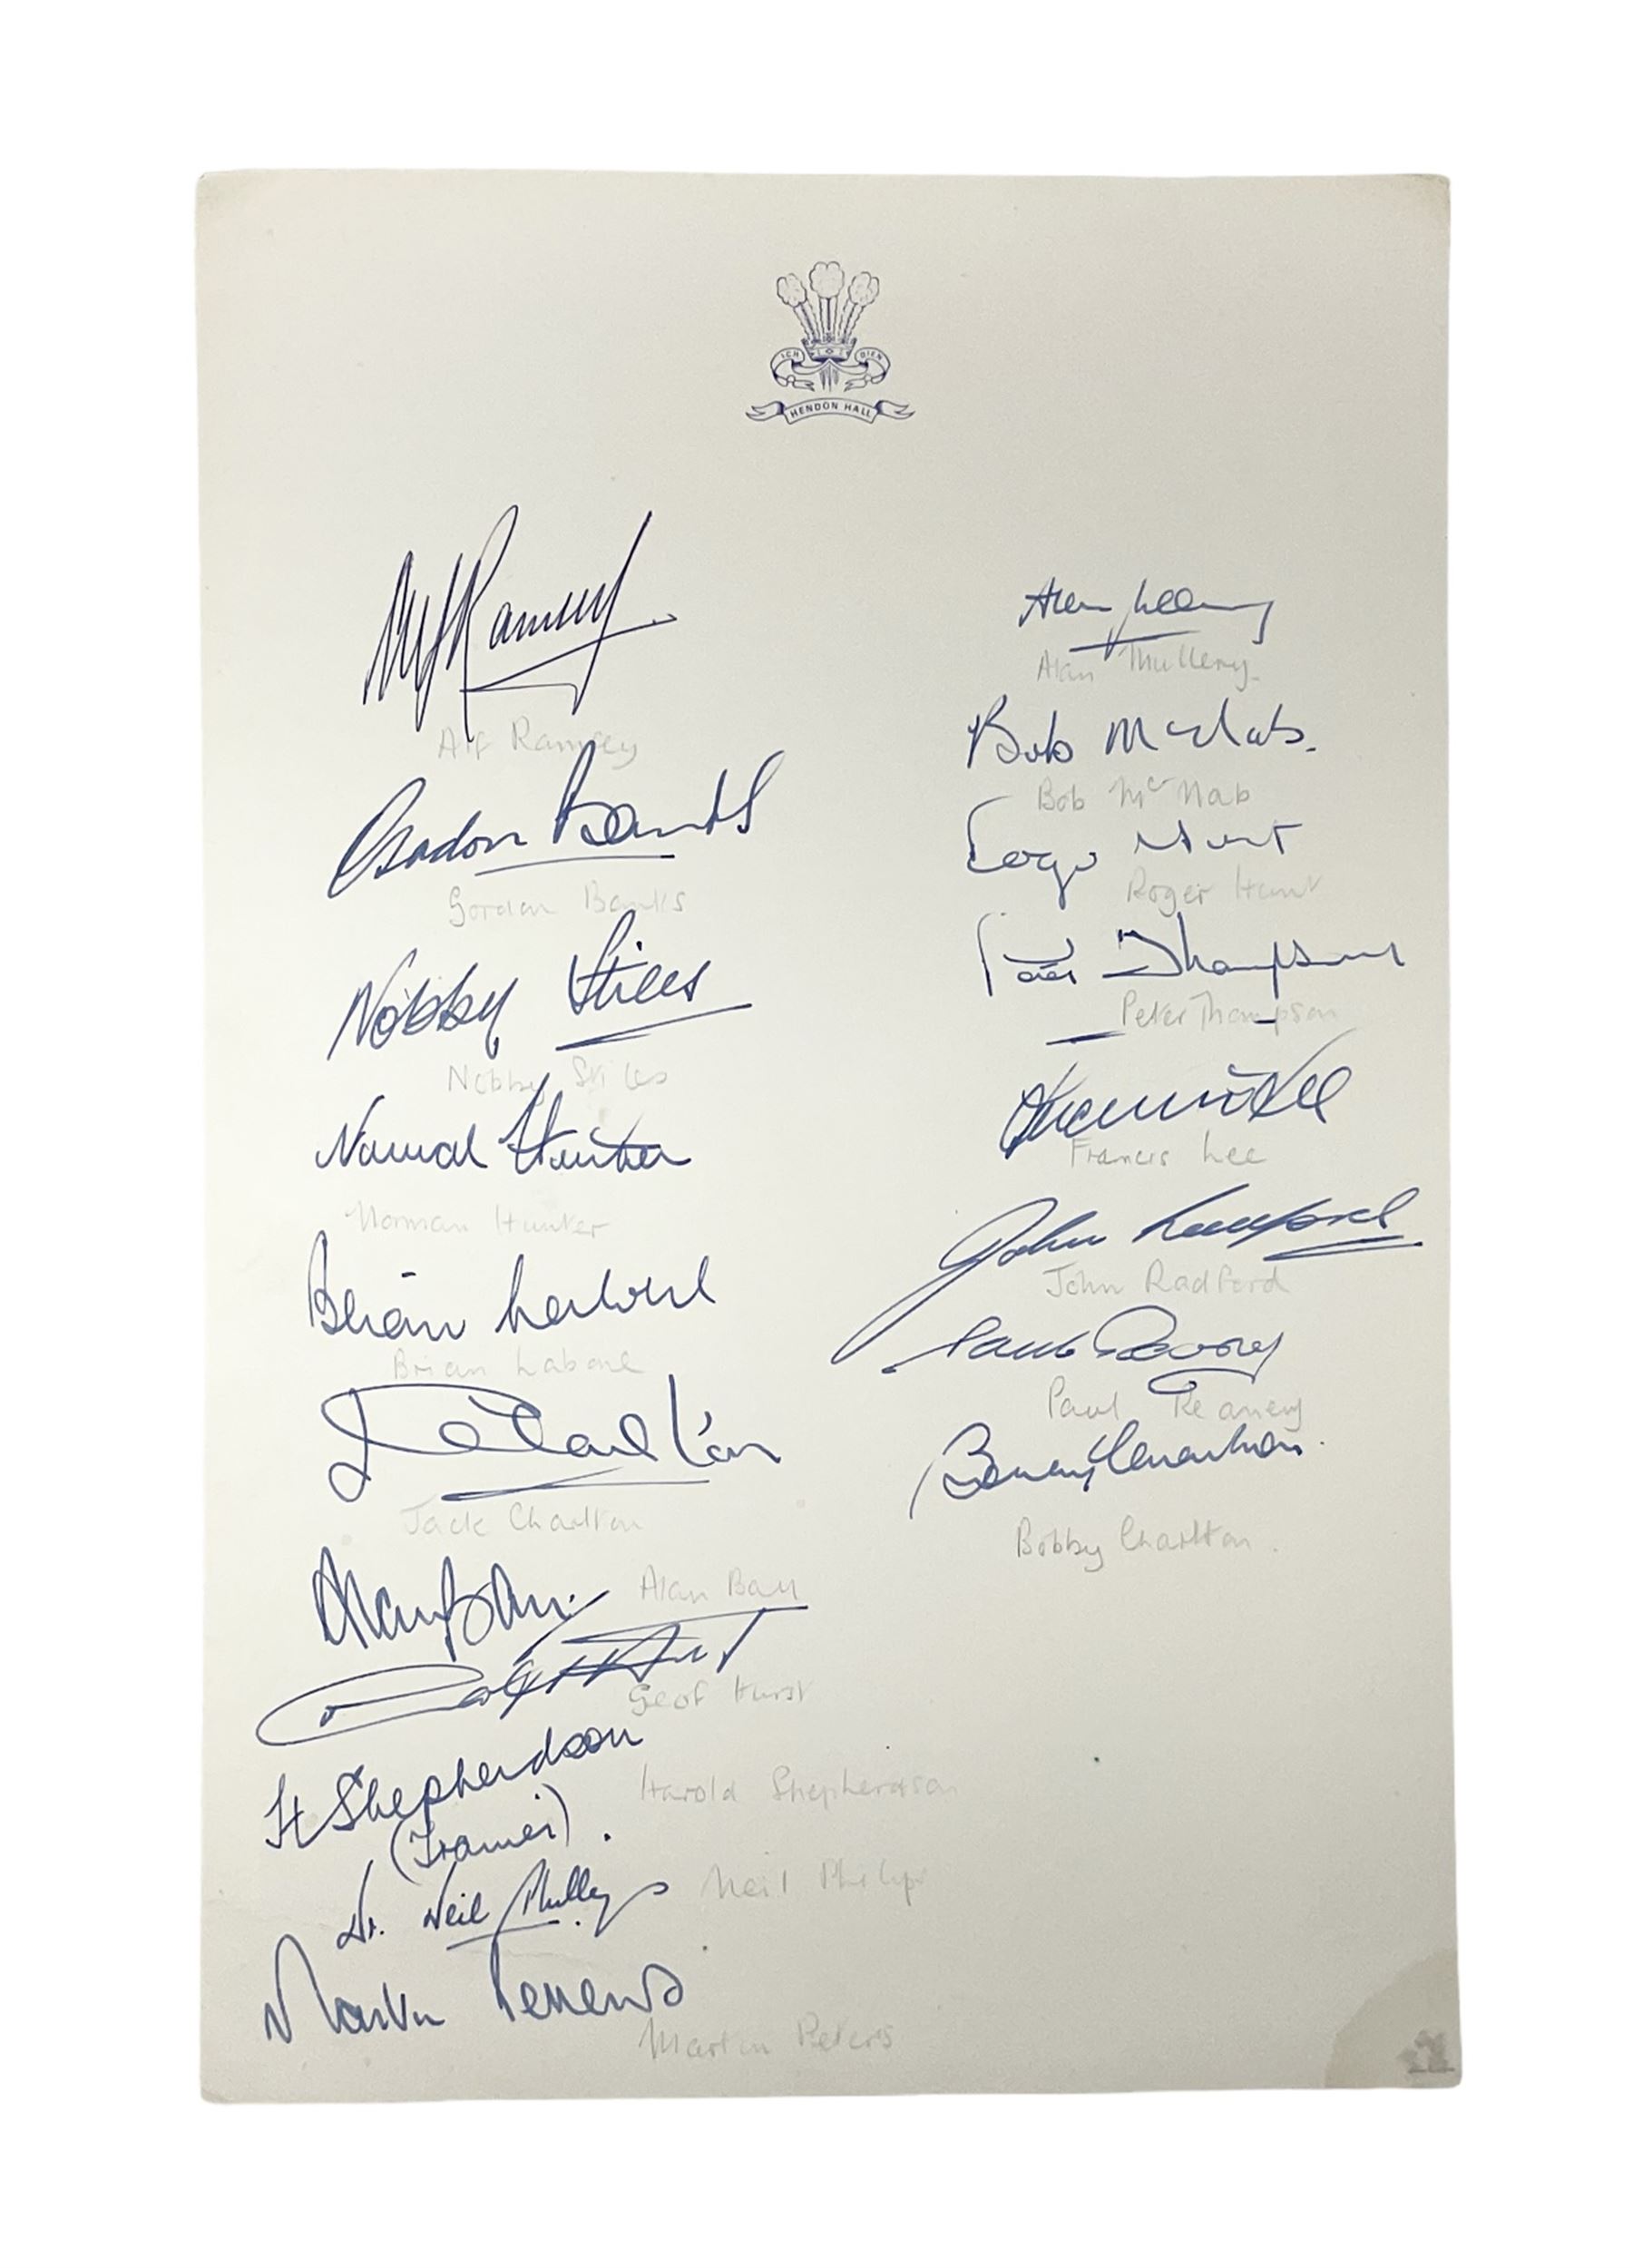 ICH DIEN
HENDON HALL
Alf Ramsey
Alf Ramsey
Gordon Banks
Gordon Banks
Nobby Stiles
Nobby Stiles
Norman Hunter
Norman Hunter
Brian Labone
Brian Labone
J Charlton
Jack Charlton
Alan Ball
Alan Ball
Geoff Hurst
Geof Hurst
H Shepherdson
Harold Shepherdson
(Trainer).
Dr. Neil Phillips
Neil Philips
Martin Peters
Martin Peters
Alan Mullery
Alan Mullery
Bob McNab.
Bob McNab
Roger Hunt
Roger Hunt
Peter Thompson
Peter Thompson
Francis Lee
Francis Lee
John Radford
John Radford
Paul Reaney
Paul Reaney
Bobby Charlton.
Bobby Charlton.